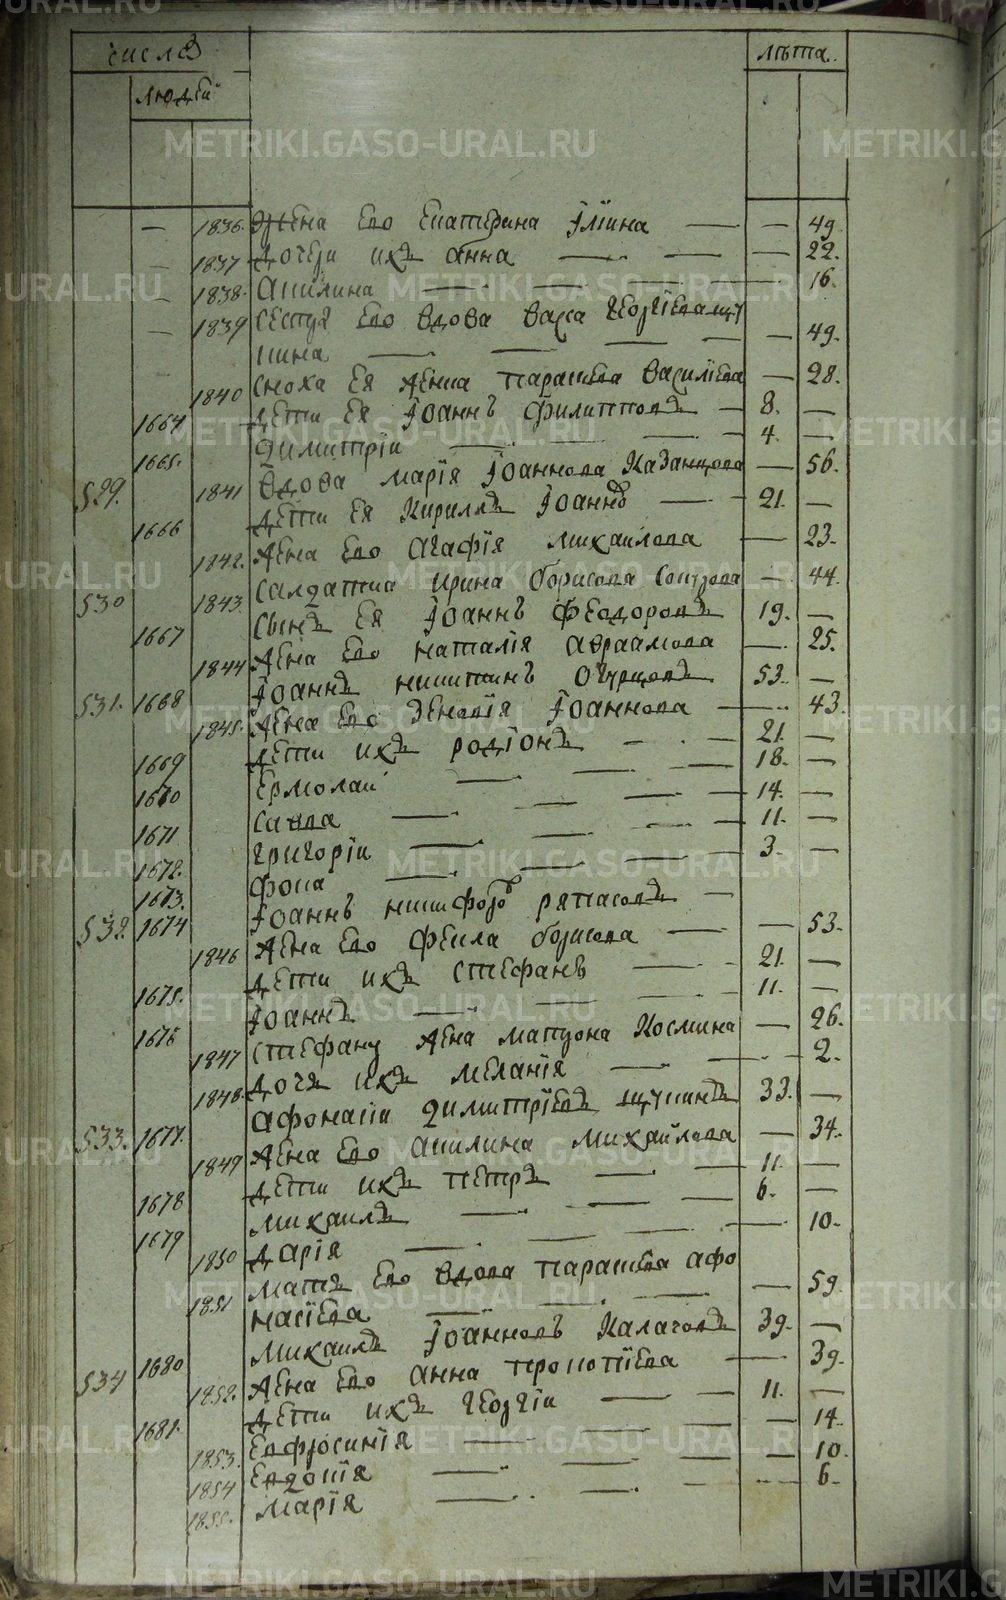 METRIKI.GASO-URAL.RU
числѣ
людей
лѣта.
— 1836. Жена его екатерина Iлїина — — 49.
— 1837 дочери ихъ анна — — — 22.
— 1838. акилина — — — — 16.
— 1839 сестра его вдова васса георгїева щу
кина — — — — — 49.
1840 сноха ея жена параскева василїева — 28.
1664 дети ея Iоаннъ филипповъ — 8. —
1665. димитрїи — — — 4. —
529. 1841 вдова марїя Iоаннова казанцова — 56.
1666 дети ея кириллъ Iоанновъ — 21. —
1842. жена его агафїя михаилова — 23.
530 1843 салдатка ирина борисова — 44.
1667 сынъ ея Iоаннъ феодоровъ 19. —
1844 жена его наталїя авраамова — 25.
531. 1668 Iоаннъ никитинъ огурцовъ 53. —
1845. жена его зеновїя Iоаннова — 43.
1669 дети ихъ родїонъ — — 21. —
1670 ермолаи — — — 18. —
1671 савва — — — 14. —
1672. григорїи — — — 11. —
1673. фока — — — 3. —
532. 1674 Iоаннъ никифоровъ ряпасовъ —
1846 жена его фекла борисова — — 53.
1675. дети ихъ стефанъ — 21. —
1676 Iоаннъ — — — 11. —
1847 стефану жена матрона космина — 26.
1848. дочь ихъ меланїя — — — 2.
533. 1677. афонасїи димитрїевъ щукинъ 33. —
1849 жена его акилина михаилова — 34.
1678 дети ихъ петръ — — 11. —
1679 михаилъ — — — 6. —
1850 дарїя — — — — 10.
1851 мать его вдова параскева афо
насїева — — — — 59.
534 1680 михаилъ Iоанновъ калаговъ 39. —
1852. жена его анна прокопїева — 39.
1681. дети ихъ георгїи — — 11. —
1853. евфросинїя — — — — 14.
1854 евдокїя — — — — 10.
1855. марїя — — — — 6.